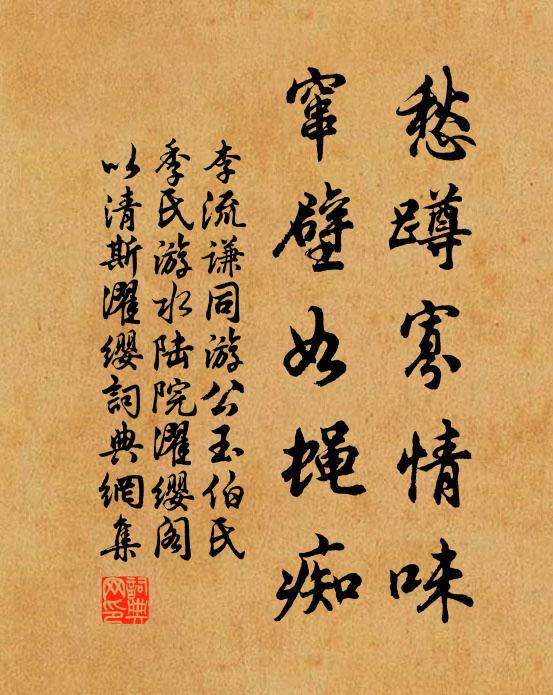 愁蹲寡情味
窜壁如蝇痴
李流谦同游公玉伯氏
季氏游水陆院濯缨阁
以清斯濯缨詞典網集
詞典
网印